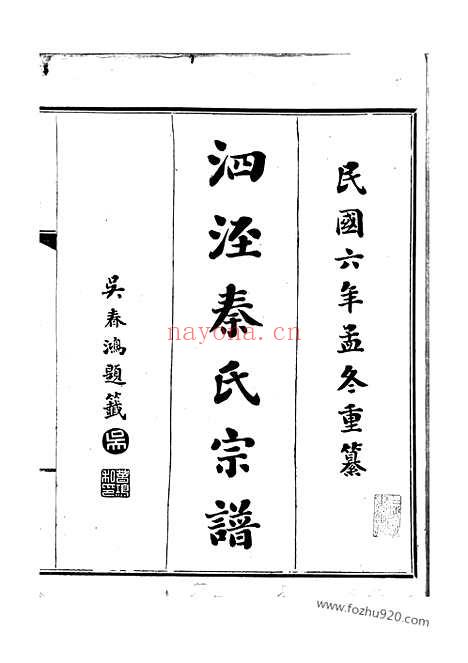 民國六年孟冬重纂
泗涇秦氏宗譜
吳春鴻題籤
吳
nayona.cn
www.fozhu920.com